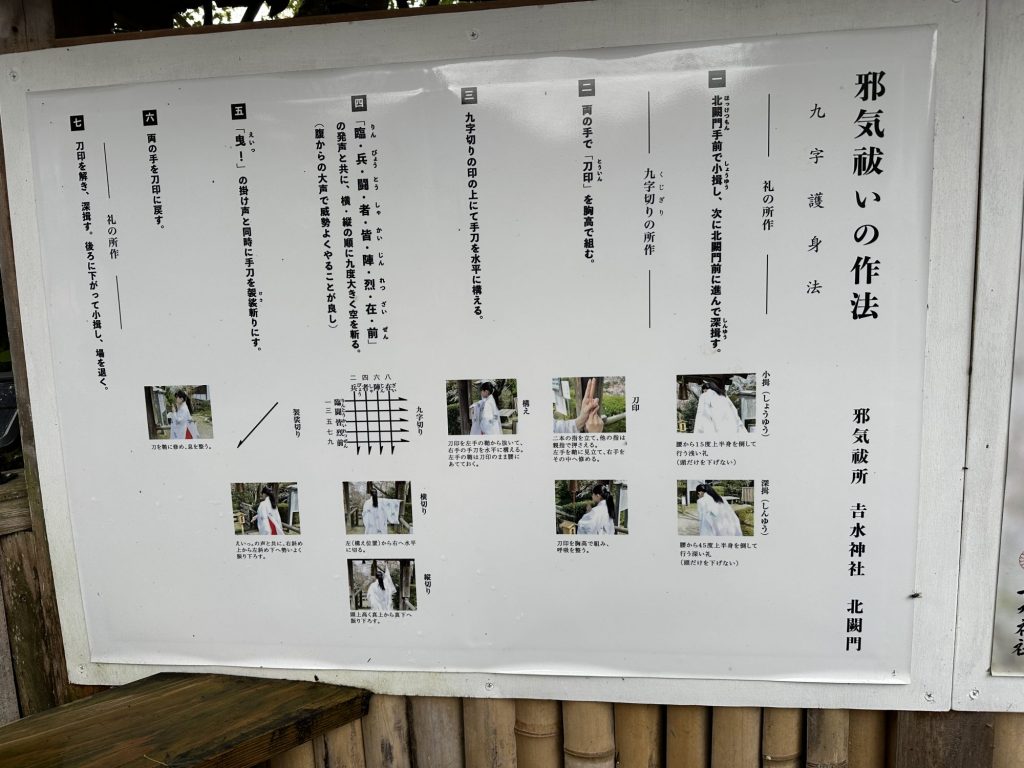 邪気祓いの作法
九字護身法
邪気祓所 𠮷水神社 北闕門
礼の所作
一 北闕門手前で小揖し、次に北闕門前に進んで深揖す。
ほっけつもん しょうゆう しんゆう
小揖（しょうゆう）
腰から15度上半身を倒して
行う浅い礼
（頭だけを下げない）
深揖（しんゆう）
腰から45度上半身を倒して
行う深い礼
（頭だけを下げない）
九字切りの所作
くじぎり
二 両の手で「刀印」を胸高で組む。
とういん
刀印
二本の指を立て、他の指は
親指で押さえる。
左手を鞘に見立て、右手を
その中へ修める。
刀印を胸高で組み、
呼吸を整う。
三 九字切りの印の上にて手刀を水平に構える。
構え
刀印を左手の鞘から抜いて、
右手の手刀を水平に構える。
左手の鞘は刀印のまま腰に
あてておく。
四 「臨・兵・闘・者・皆・陣・烈・在・前」
りん びょう とう しゃ かい じん れつ ざい ぜん
の発声と共に、横・縦の順に九度大きく空を斬る。
（腹からの大声で威勢よくやることが良し）
九字切り
二 四 六 八
兵 者 陣 在
臨 闘 皆 烈 前
一 三 五 七 九
横切り
左（構え位置）から右へ水平
に切る。
縦切り
頭上高く真上から真下へ
振り下ろす。
五 「曳！」の掛け声と同時に手刀を袈裟斬りにす。
えいっ けさ
袈裟切り
えいっ。の声と共に、右斜め
上から左斜め下へ勢いよく
振り下ろす。
六 両の手を刀印に戻す。
刀を鞘に修め、息を整う。
礼の所作
七 刀印を解き、深揖す。後ろに下がって小揖し、場を退く。
水神社